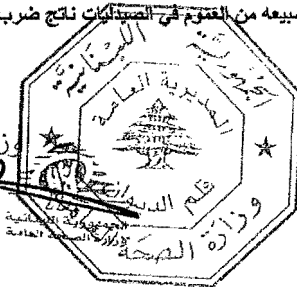 سبيعه من العموم في الصيدليات ناتج ضرب
الجمهورية اللبنانية
المديرية العامة
قلم الديوان
وزارة الصحة
الجمهورية اللبنانية
وزارة الصحة العامة